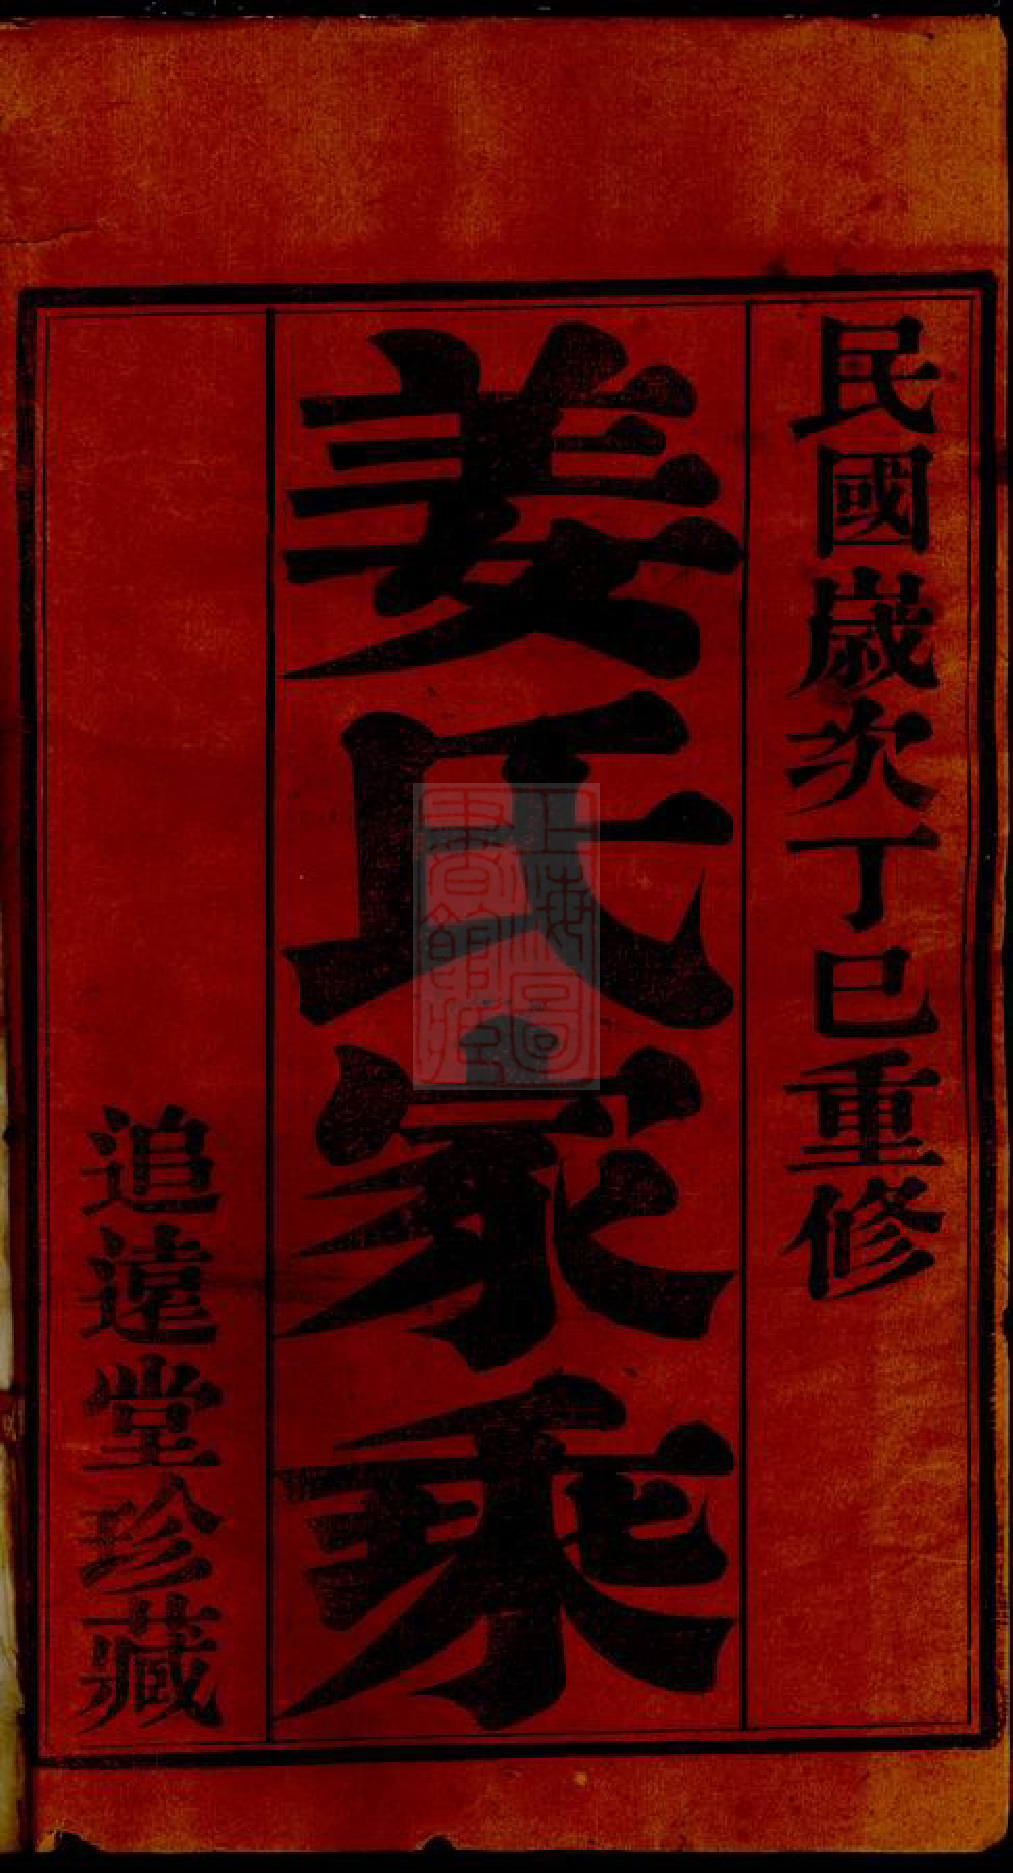 民國歲次丁巳重修
姜氏家乘
追遠堂珍藏
上海圖書館藏